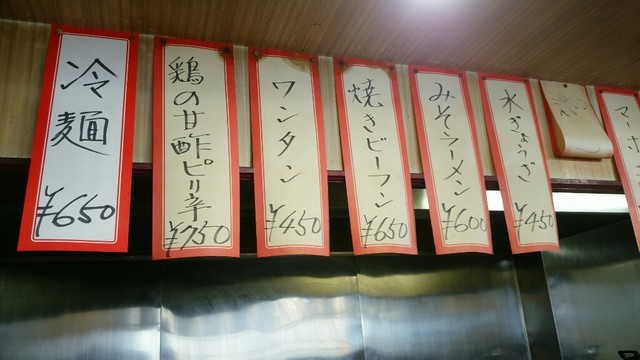 冷麺
¥650
鶏の甘酢ピリ辛
¥750
ワンタン
¥450
焼きビーフン
¥650
みそラーメン
¥600
水ぎょうざ
¥450
マーボ